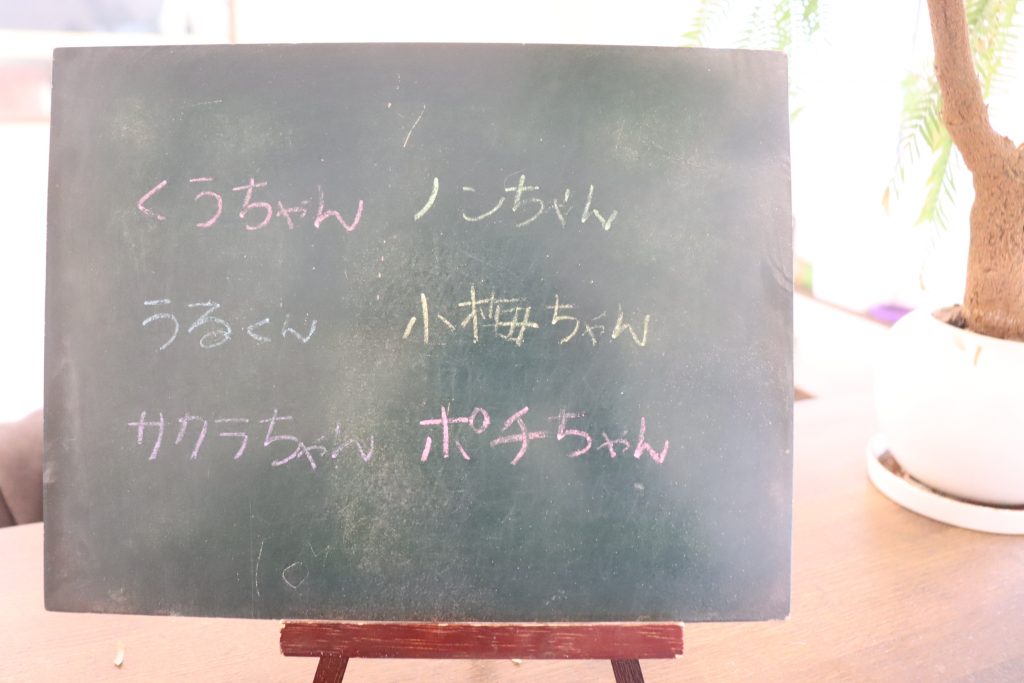 くうちゃん ノンちゃん
うるくん 小梅ちゃん
サクラちゃん ポチちゃん